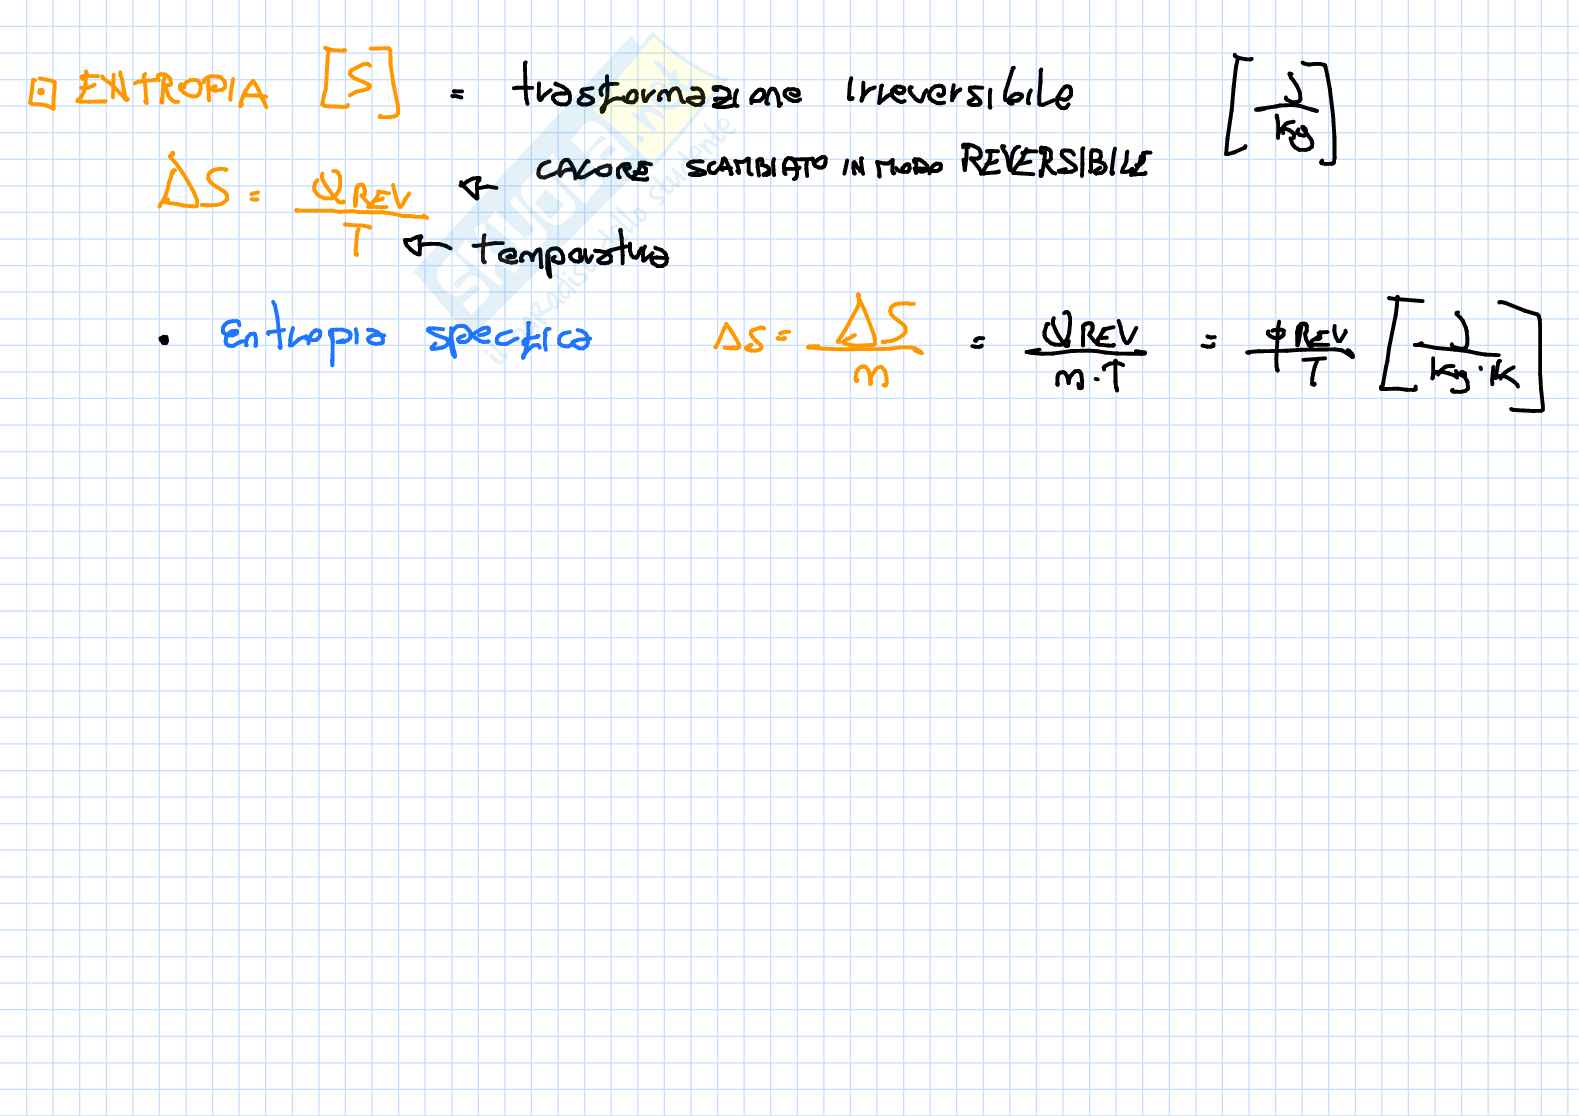 ENTROPIA [S] = trasformazione irreversibile [J/kg]
ΔS = QREV/T ← CALORE SCAMBIATO IN MODO REVERSIBILE
← temperatura
• Entropia specifica Δs = ΔS/m = QREV/m·T = ϕREV/T [J/kg·K]
SKUOLA.net